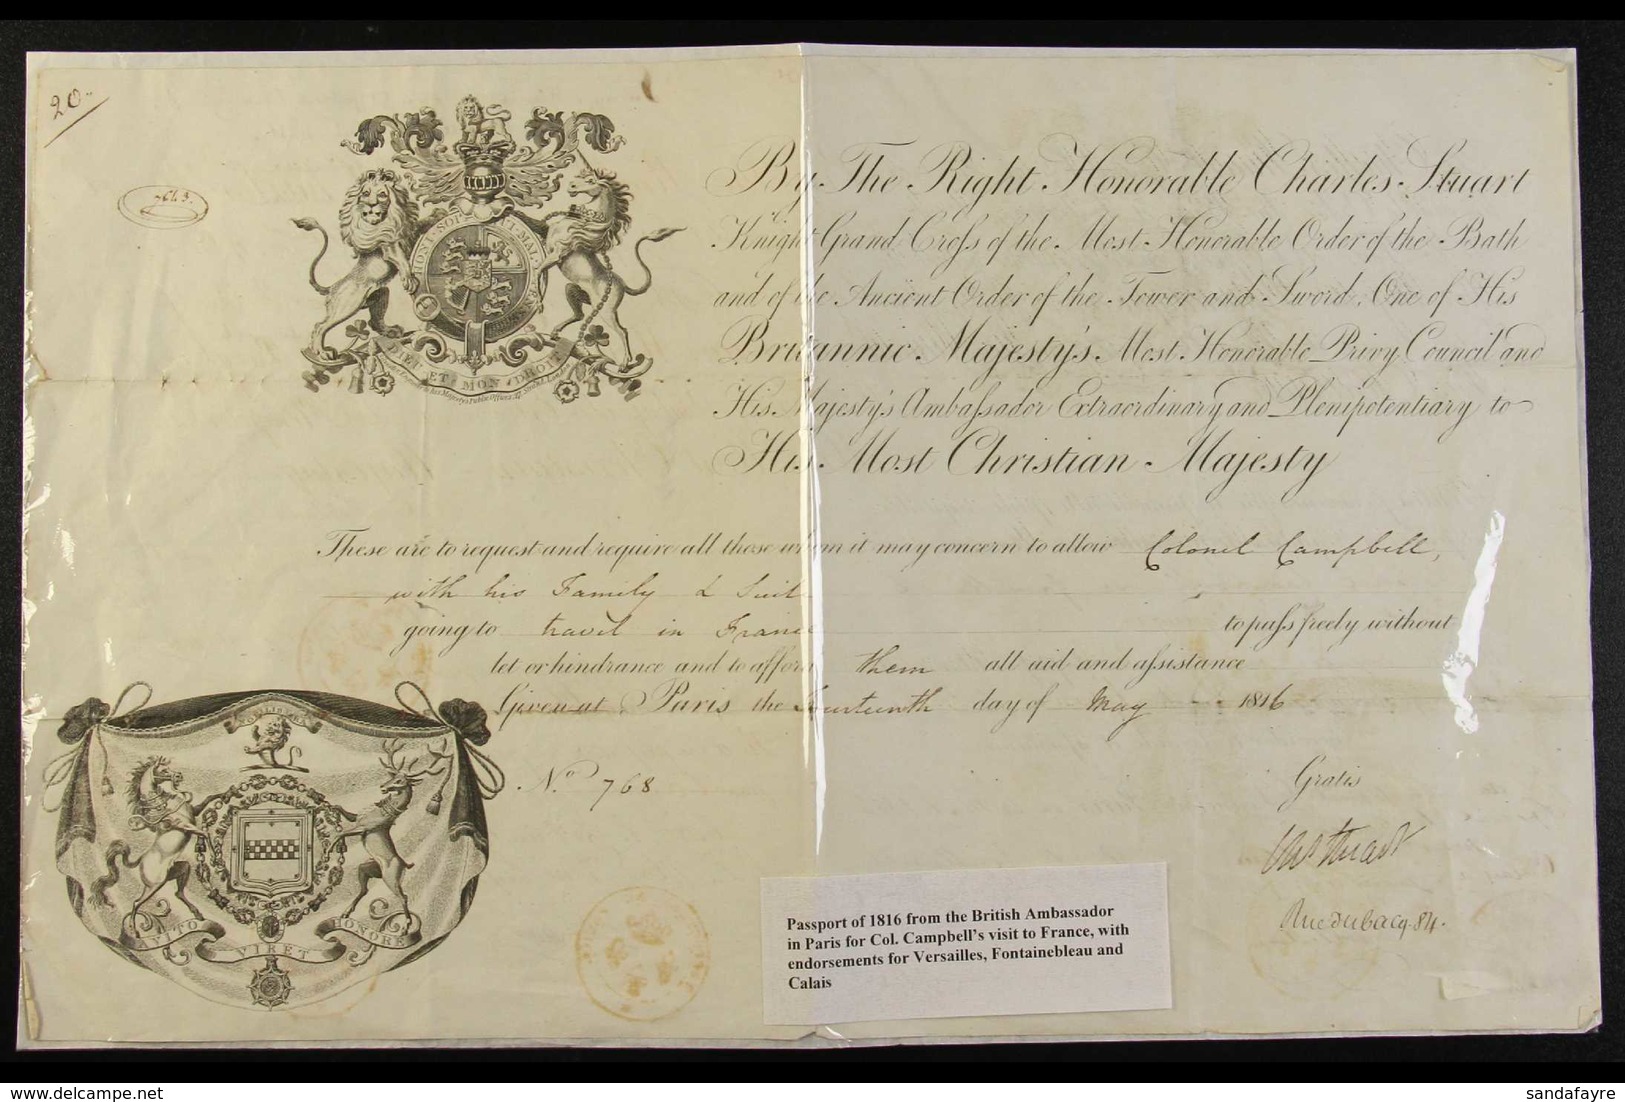 20
7613.
HONI·SOIT
DIEU·ET·MON·DROIT
By The Right Honorable Charles Stuart
Knight Grand Croſs of the Most Honorable Order of the Bath
and of the Ancient Order of the Tower and Sword, One of His
Britannic Majesty's Most Honorable Privy Council and
His Majesty's Ambaſsador Extraordinary and Plenipotentiary to
His Most Christian Majesty
These are to request and require all those whom it may concern to allow Colonel Campbell,
with his Family & Suite
going to travel in France to paſs freely without
let or hindrance and to afford them all aid and aſsistance
Given at Paris the fourteenth day of May 1816
No. 768
Gratis
Rue du Bacq. 84.
NOBILIS IRA
AVITO
VIRET
HONORE
Passport of 1816 from the British Ambassador
in Paris for Col. Campbell's visit to France, with
endorsements for Versailles, Fontainebleau and
Calais
delcampe.net
sandafayre